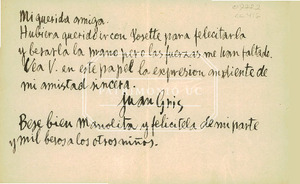 Mi querida amiga.
Hubiera querido ir con Josette para felicitarla
y besarla la mano pero las fuerzas me han faltado.
Vea V. en este papel la expresion ardiente de
mi amistad sincera.
Juan Gris
Bese bien Manolita y felicitela de mi parte
y mil besos a los otros niños.